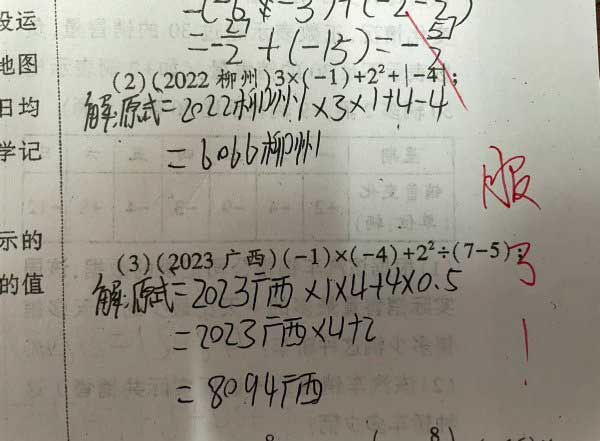 设运
地图
日均
学记
示的
的值
= -27/2 + (-15) = -57/2
(2)(2022 柳州)3×(-1)+2²+|-4|;
解:原式=2022柳州×3×1+4-4
=6066柳州
(3)(2023 广西)(-1)×(-4)+2²÷(7-5);
解:原式=2023广西×1×4+4×0.5
=2023广西×4+2
=8094广西
服
了
!